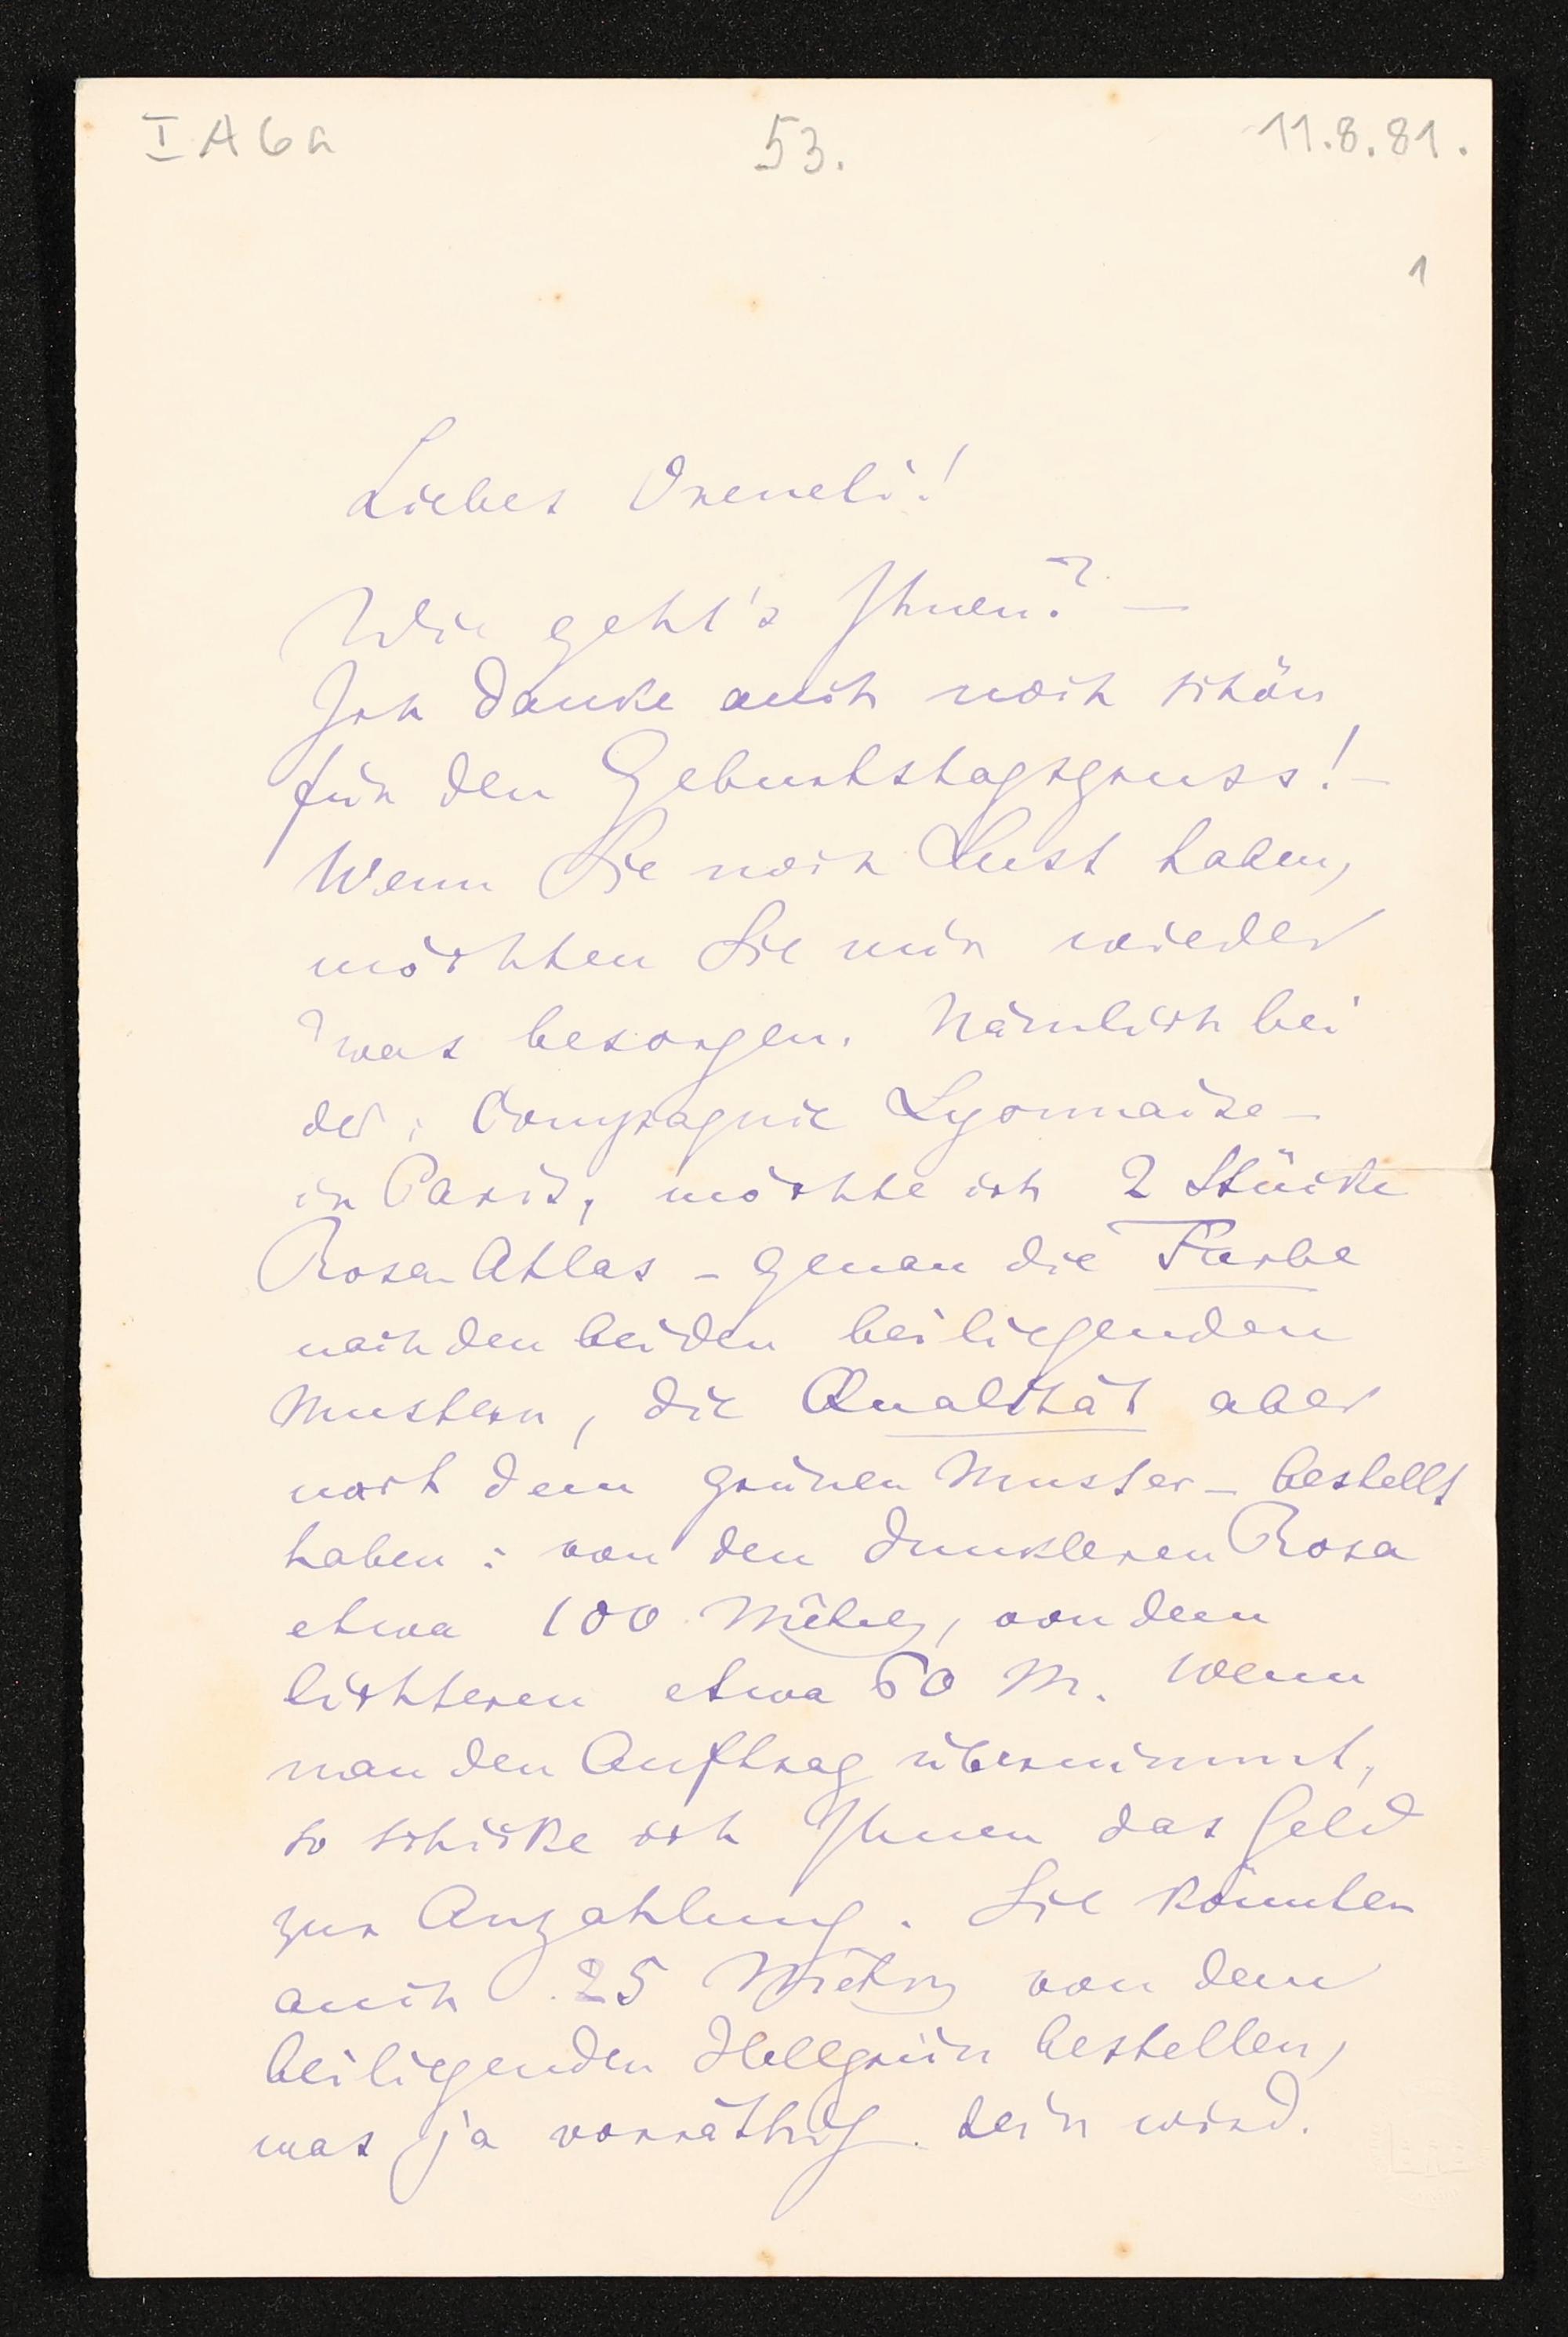 I A 6a 53. 11.8.81.
1
Liebes Vreneli!
Wie geht's Ihnen? —
Ich danke auch noch schön
für den Geburtstagsgruss! —
Wenn Sie noch Lust haben,
möchten Sie mir wieder
'was besorgen. Nämlich bei
der: Compagnie Lyonnaise —
in Paris, möchte ich 2 Stücke
Rosa Atlas – genau die Farbe
nach den beiden beiliegenden
Mustern, die Qualität aber
nach dem grünen Muster – bestellt
haben: von den dunkleren Rosa
etwa 100 Mètres, von dem
lichteren etwa 60 M. Wenn
man den Auftrag übernimmt,
so schicke ich Ihnen das Geld
zur Anzahlung. Sie könnten
auch 25 Mètres von dem
beiliegenden Hellgrün bestellen,
was ja vorräthig sein wird.